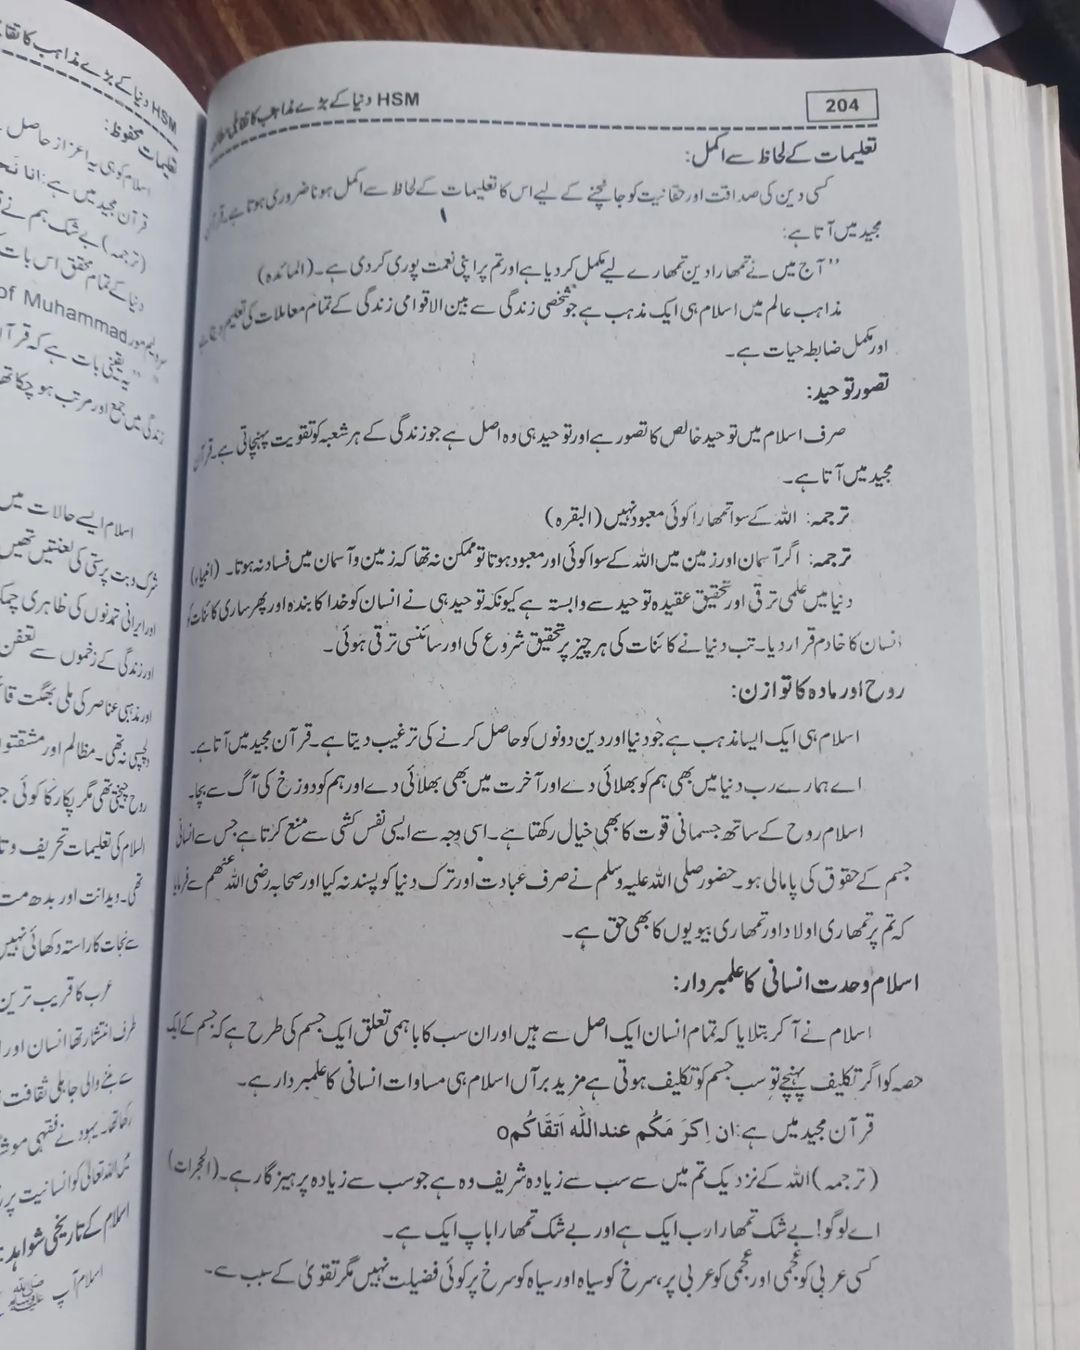 204
HSM دنیا کے بڑے مذاہب کا تقابلی
تعلیمات کے لحاظ سے اکمل:
کسی دین کی صداقت اور حقانیت کو جانچنے کے لیے اس کا تعلیمات کے لحاظ سے اکمل ہونا ضروری ہوتا ہے۔ قرآن
مجید میں آتا ہے:
’’آج میں نے تمھارا دین تمھارے لیے مکمل کر دیا ہے اور تم پر اپنی نعمت پوری کر دی ہے۔ (المائدہ)
مذاہب عالم میں اسلام ہی ایک مذہب ہے جو شخصی زندگی سے بین الاقوامی زندگی کے تمام معاملات کی تعلیم دیتا ہے
اور مکمل ضابطہ حیات ہے۔
تصور توحید:
صرف اسلام میں توحید خالص کا تصور ہے اور توحید ہی وہ اصل ہے جو زندگی کے ہر شعبہ کو تقویت پہنچاتی ہے۔ قرآن
مجید میں آتا ہے۔
ترجمہ: اللہ کے سوا تمھارا کوئی معبود نہیں (البقرہ)
ترجمہ: اگر آسمان اور زمین میں اللہ کے سوا کوئی اور معبود ہوتا تو ممکن نہ تھا کہ زمین و آسمان میں فساد نہ ہوتا۔ (انبیاء)
دنیا میں علمی ترقی اور تحقیق عقیدہ توحید سے وابستہ ہے کیونکہ توحید ہی نے انسان کو خدا کا بندہ اور پھر ساری کائنات کو
انسان کا خادم قرار دیا۔ تب دنیا نے کائنات کی ہر چیز پر تحقیق شروع کی اور سائنسی ترقی ہوئی۔
روح اور مادہ کا توازن:
اسلام ہی ایک ایسا مذہب ہے جو دنیا اور دین دونوں کو حاصل کرنے کی ترغیب دیتا ہے۔ قرآن مجید میں آتا ہے۔
اے ہمارے رب دنیا میں بھی ہم کو بھلائی دے اور آخرت میں بھی بھلائی دے اور ہم کو دوزخ کی آگ سے بچا۔
اسلام روح کے ساتھ جسمانی قوت کا بھی خیال رکھتا ہے۔ اسی وجہ سے ایسی نفس کشی سے منع کرتا ہے جس سے انسانی
جسم کے حقوق کی پامالی ہو۔ حضور صلی اللہ علیہ وسلم نے صرف عبادت اور ترک دنیا کو پسند نہ کیا اور صحابہ رضی اللہ عنھم سے فرمایا
کہ تم پر تمھاری اولاد اور تمھاری بیویوں کا بھی حق ہے۔
اسلام وحدت انسانی کا علمبردار:
اسلام نے آ کر بتلایا کہ تمام انسان ایک اصل سے ہیں اور ان سب کا باہمی تعلق ایک جسم کی طرح ہے کہ جسم کے ایک
حصہ کو اگر تکلیف پہنچے تو سب جسم کو تکلیف ہوتی ہے مزید برآں اسلام ہی مساوات انسانی کا علمبردار ہے۔
قرآن مجید میں ہے: ان اِکرَ مَکُم عنداللّٰه اَتقَاکُمo
(ترجمہ) اللہ کے نزدیک تم میں سے سب سے زیادہ شریف وہ ہے جو سب سے زیادہ پرہیز گار ہے۔ (الحجرات)
اے لوگو! بے شک تمھارا رب ایک ہے اور بے شک تمھارا باپ ایک ہے۔
کسی عربی کو عجمی اور عجمی کو عربی پر، سرخ کو سیاہ اور سیاہ کو سرخ پر کوئی فضیلت نہیں مگر تقویٰ کے سبب سے۔
HSM دنیا کے بڑے مذاہب کا تقا
تعلیمات محفوظ:
اسلام کو ہی یہ اعزاز حاصل
قرآن مجید میں ہے: انا نَح
(ترجمہ) بے شک ہم نے
دنیا کے تمام محقق اس بات
of Muhammad سر ولیم مور
’’یہ یقینی بات ہے کہ قرآن
زندگی میں جمع اور مرتب ہو چکا تھا
اسلام ایسے حالات میں
شرک و بت پرستی کی لعنتیں تھیں
اور ایرانی تمدنوں کی ظاہری چمک
اور زندگی کے زخموں سے تعفن
اور مذہبی عناصر کی ملی بھگت قائم
دلچسپی نہ تھی۔ مظالم اور مشقتوں
روح چیختی تھی مگر پکار کا کوئی
السلام کی تعلیمات تحریف و
تھی۔ ویدانت اور بدھ مت
سے نجات کا راستہ دکھائی نہیں
عرب کا قریب ترین
طرف انتشار تھا انسان اور
سے بننے والی جاہلی ثقافت
رکھا تھا۔ یہود نے فقہی
اللہ تعالیٰ کو انسانیت پر
اسلام کے تاریخی شواہد:
اسلام آپ ﷺ